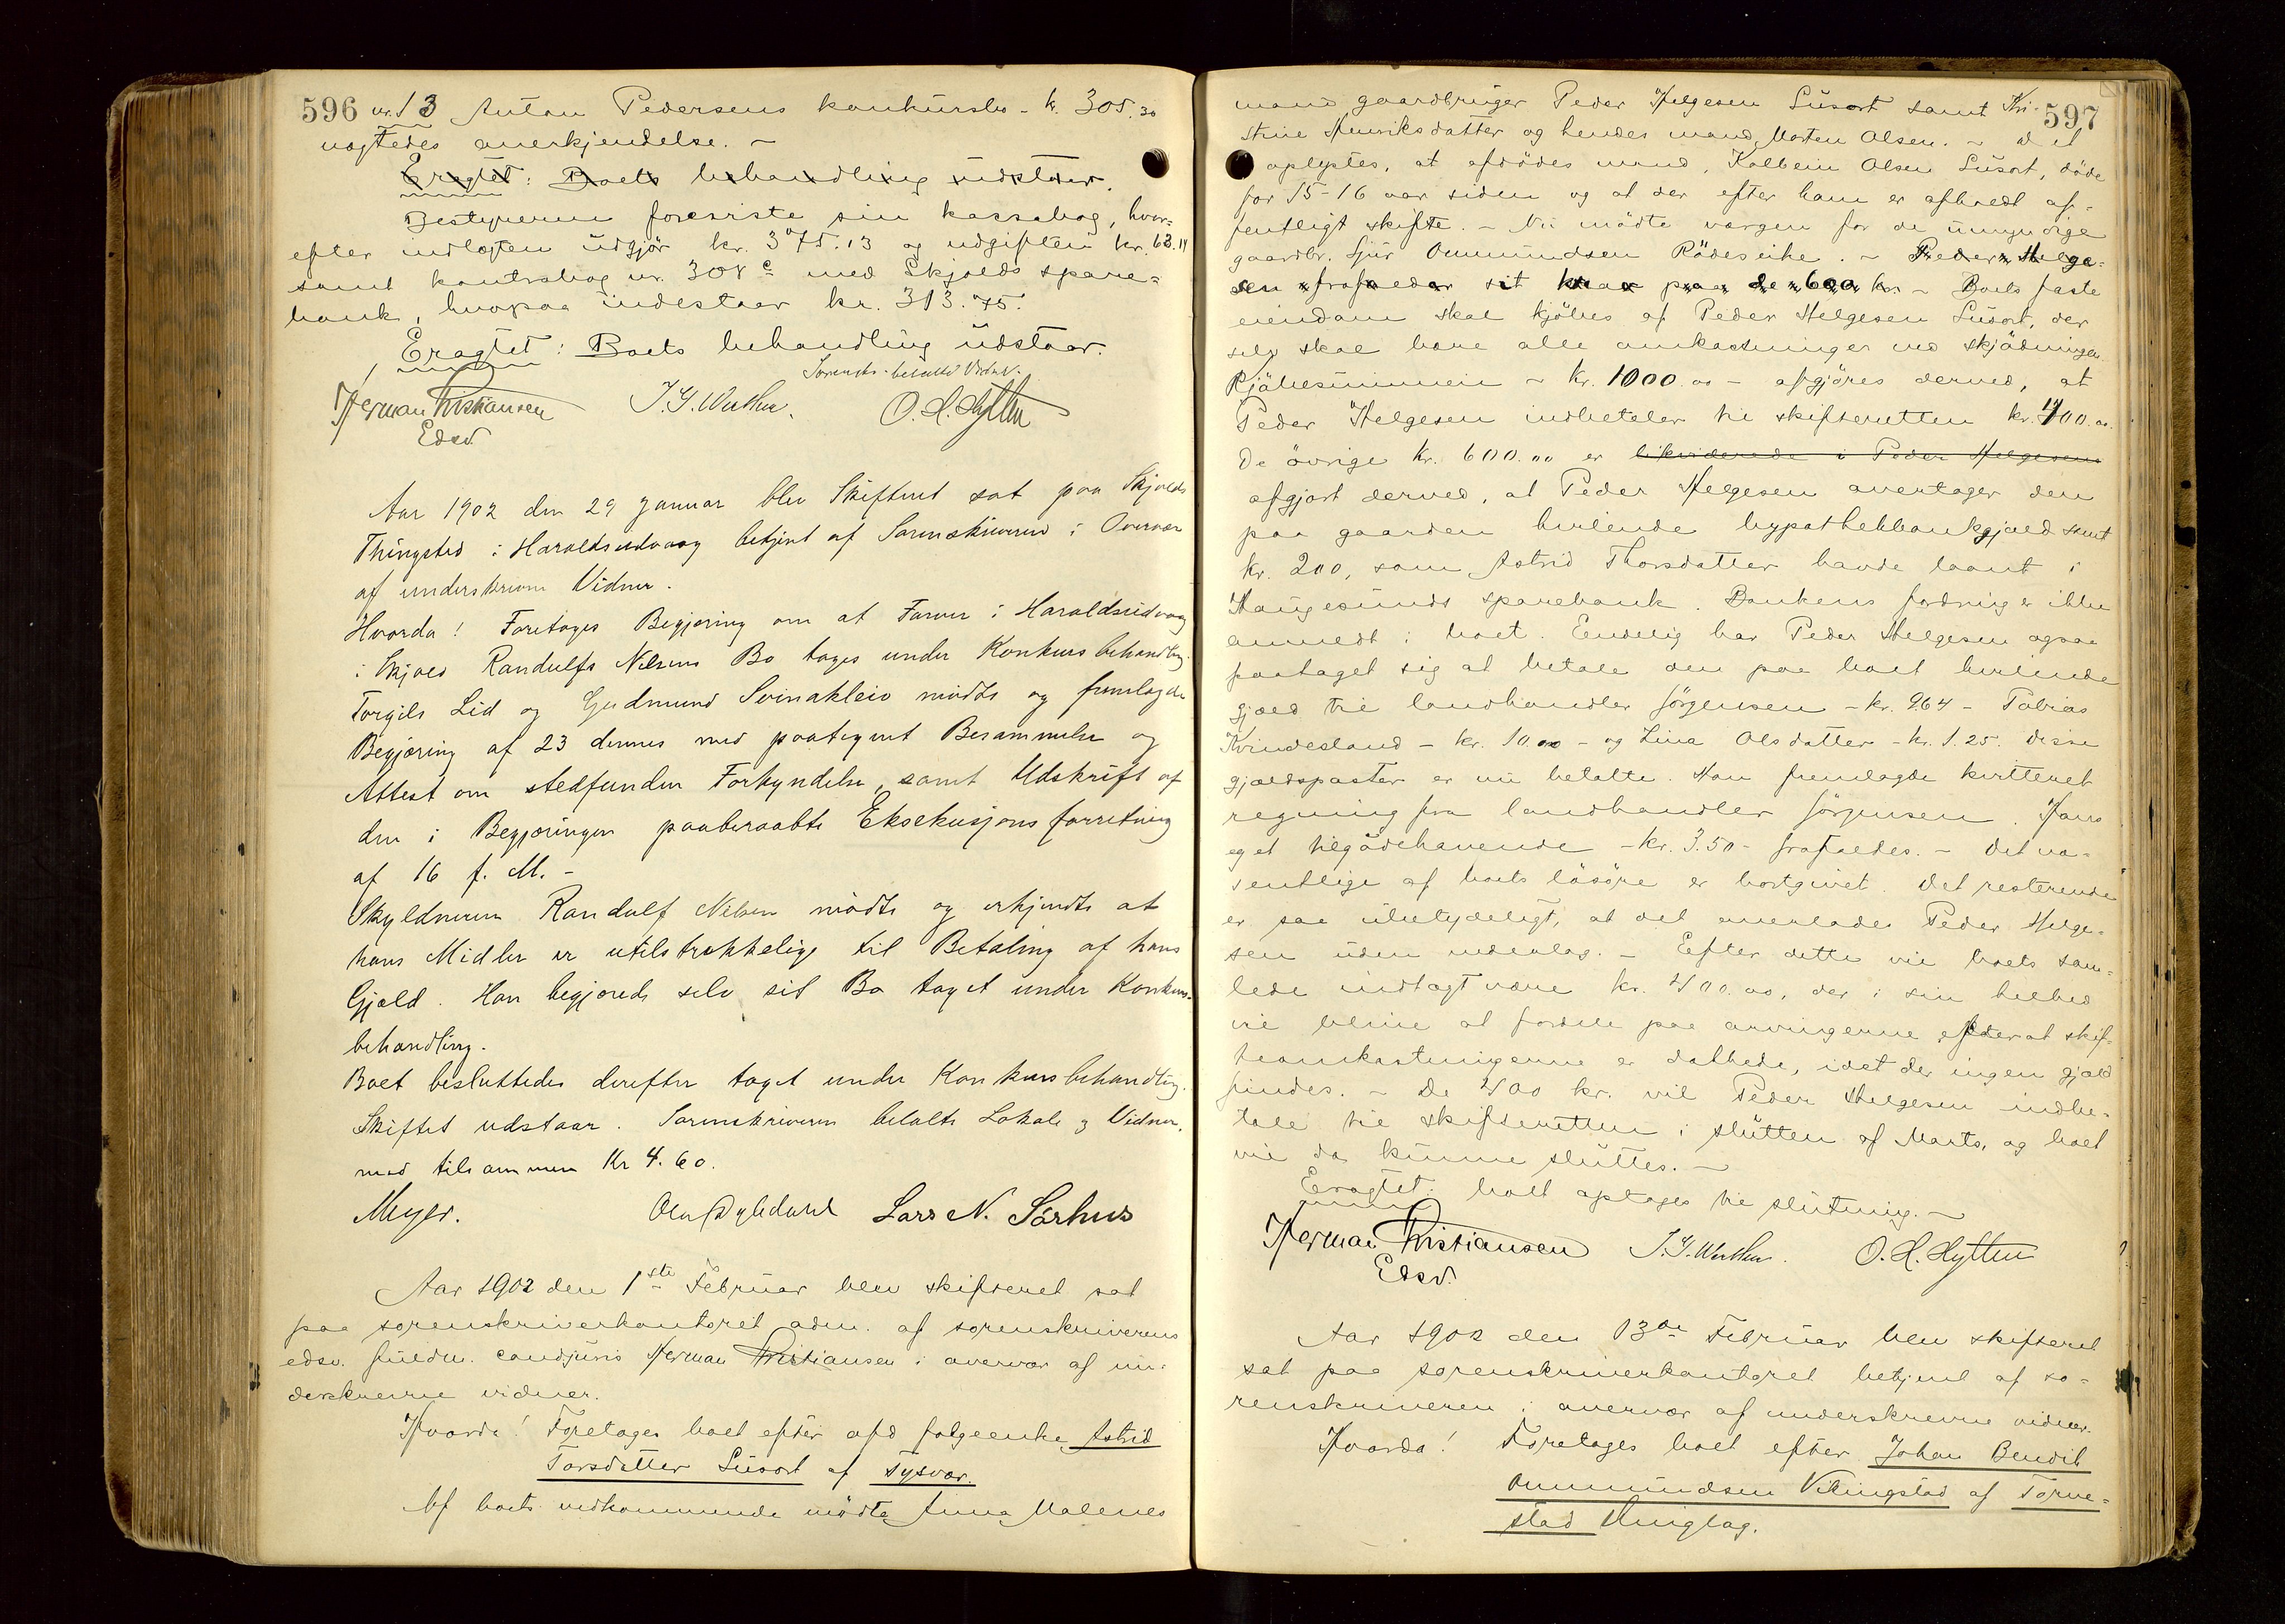 596 nr. 13 Anton Pedersens konkursbo - kr. 305.30
nogtedes anerkjendelse. -
Eragtet: Boets behandling udstaar.
Bestyreren foreviste sin kassabog, hvor-
efter indtægten udgjør kr. 375.13 og udgiften kr. 63.14
samt kontrabog nr. 308 c med Skjolds spare-
bank, hvorpaa indestaar kr. 313.75.
Eragtet: Boets behandling udstaar.
Sorenskr. betalte Vidner.
Herman Kristiansen
Edsv.
O. H. Hytten
Aar 1902 den 29 Januar blev Skifteret sat paa Skjolds
Thingsted i Haraldseidvaag betjent af Sorenskriveren i Overvær
af underskrevne Vidner.
Hvorda! Foretoges Begjæring om at Farver i Haraldseidvaag
i Skjold Randulfs Nelsens Bo tages under Konkursbehandling.
Torgils Lid og Gudmund Svinakleiv mødte og fremlagde
Begjæring af 23 dennes med paategnet Berammelse og
Attest om stedfunden Forkyndelse, samt Udskrift af
den i Begjæringen paaberaabte Eksekusjonsforretning
af 16 f. M. -
Skyldneren Randulf Nelsen mødte og erkjendte at
hans Midler er utilstrækkelige til Betaling af hans
Gjæld. Han begjærede selv sit Bo taget under Konkurs-
behandling.
Boet besluttedes derefter taget under Konkursbehandling.
Skiftet udstaar. Sorenskriveren betalte Lokale & Vidner,
med tilsammen Kr 4.60.
Meyer. Lars N. Sørhus
Aar 1902 den 1ste Februar blev skifteret sat
paa sorenskriverkontoret adm. af sorenskriverens
edsv. fuldm. cand juris Herman Kristiansen i overvær af un-
derskrevne vidner.
Hvorda! Foretoges boet efter afd folgeenke Astrid
Torsdatter Susort af Tysvær.
Af boets vedkommende mødte Anna Malenes
597
mand gaardbruger Peder Helgesen Susort samt Kri-
stine Henriksdatter og hendes mand, Morten Olsen. - Det
oplystes, at afdødes mand, Kolbein Olsen Susort, døde
for 15-16 aar siden og at der efter ham er afholdt of-
fentligt skifte. - Nu mødte værgen for de umyndige
gaardbr. Sjur Ommundsen Rødeseike. - Peder Helge-
sen frafalder sit krav paa de 600 kr. - Boets faste
eiendom skal kjøbes af Peder Helgesen Susort, der
selv skal bære alle omkostninger ved skjødningen.
Kjøbesummen - kr. 1000.00 - afgjøres derved, at
Peder Helgesen indbetaler til skifteretten kr. 400.00.
De øvrige kr. 600.00 er likviderede i Peder Helgesens
afgjort derved, at Peder Helgesen overtager den
paa gaarden hvilende hypothekbankgjæld samt
kr. 200, som Astrid Thorsdatter havde laant i
Haugesunds sparebank. Bankens fordring er ikke
anmeldt i boet. Endelig har Peder Helgesen ogsaa
paataget sig at betale den paa boet hvilende
gjæld til landhandler Jørgensen - kr. 9.64 - Tobias
Kvindesland - kr. 10.00 - og Lina Olsdatter - kr. 1.25. Disse
gjældsposter er nu betalte. Han fremlagde kvitteret
regning fra landhandler Jørgensen. Hans
eget tilgodehavende - kr. 3.50 - frafaldes. - Det væ-
sentlige af boets løsøre er bortgivet. Det resterende
er saa ubetydeligt, at det overlades Peder Helge-
sen uden vederlag. - Efter dette vil boets sam-
lede indtægt være kr. 400.00, der i sin helhed
vil blive at fordele paa arvingerne efterat skif-
teomkostningerne er dækkede, idet der ingen gjæld
findes. - De 400 kr. vil Peder Helgesen indbe-
tale til skifteretten i slutten af Marts, og boet
vil da kunne sluttes. -
Eragtet: boet optages til slutning. -
Herman Kristiansen O. H. Hytten
Edsv.
Aar 1902 den 13de Februar blev skifteret
sat paa sorenskriverkontoret betjent af so-
renskriveren i overvær af underskrevne vidner.
Hvorda! Foretoges boet efter Johan Bendik
Ommundsen Vikingstad af Torve-
stad thinglag.